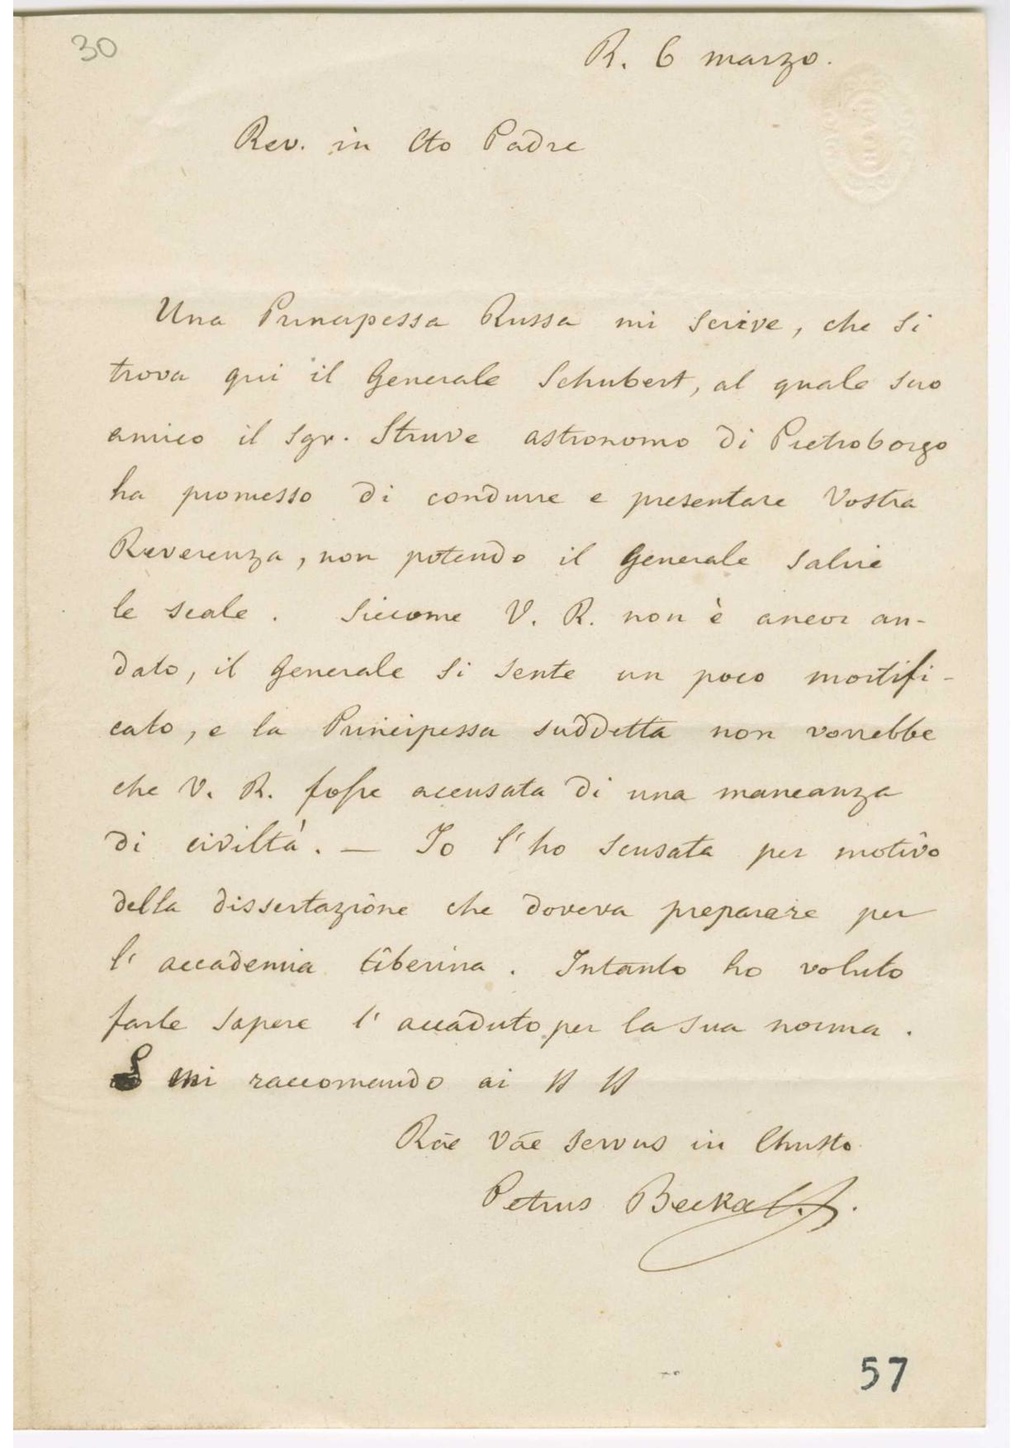 30
R. 6 marzo.
Rev. in Cto Padre
Una Principessa Russa mi scrive, che si
trova qui il Generale Schubert, al quale suo
amico il Sgr. Struve astronomo di Pietroborgo
ha promesso di condurre e presentare Vostra
Reverenza, non potendo il Generale salire
le scale. Siccome V. R. non è ancor an-
dato, il Generale si sente un poco mortifi-
cato, e la Principessa suddetta non vorrebbe
che V. R. fosse accusata di una mancanza
di civiltà. — Io l'ho scusata per motivo
della dissertazione che doveva preparare per
l'accademia tiberina. Intanto ho voluto
farle sapere l'accaduto per la sua norma.
mi raccomando ai SS SS
Rāe Vāe servus in Christo
Petrus Beckx S.J.
57